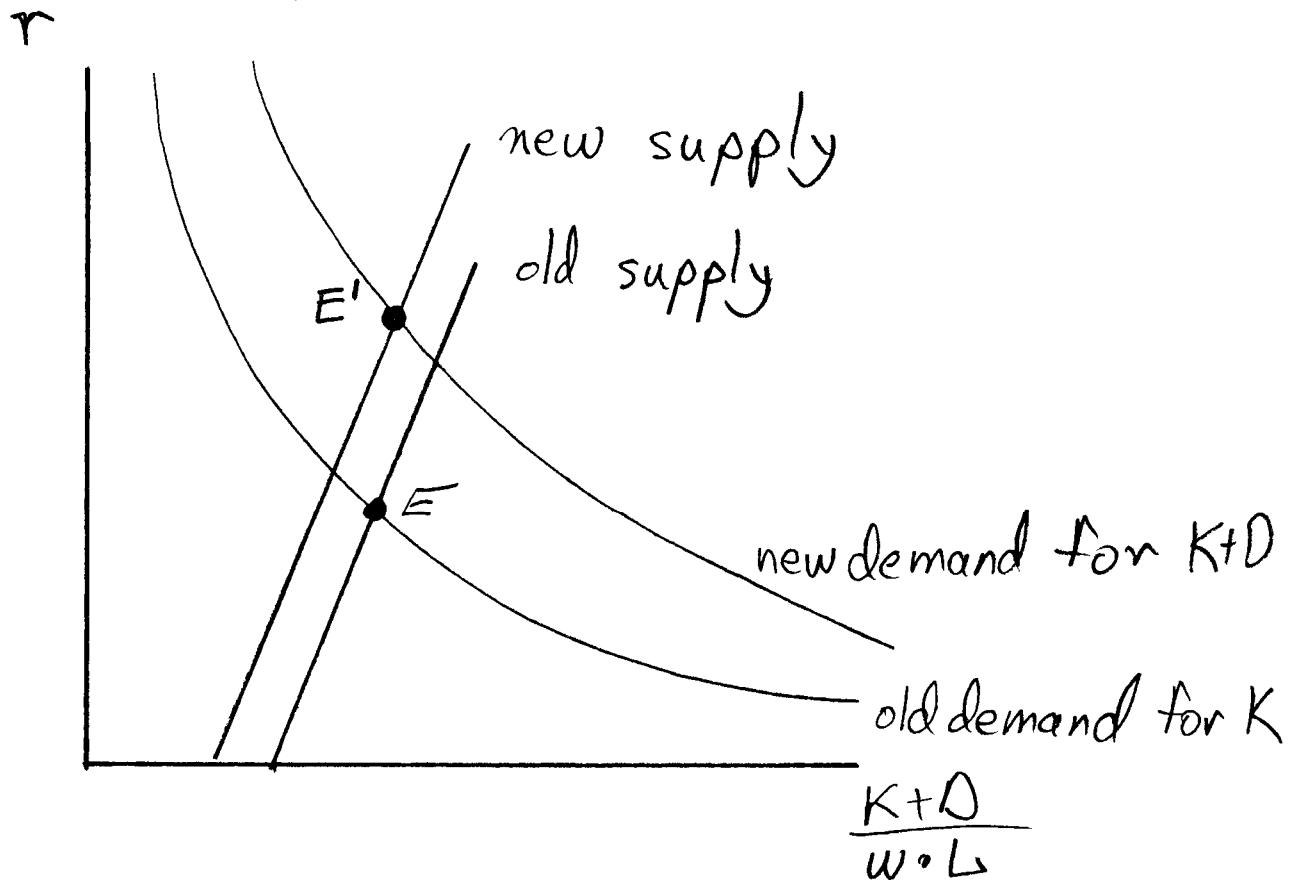 r
new supply
old supply
E'
E
new demand for K+D
old demand for K
K+D
w • L